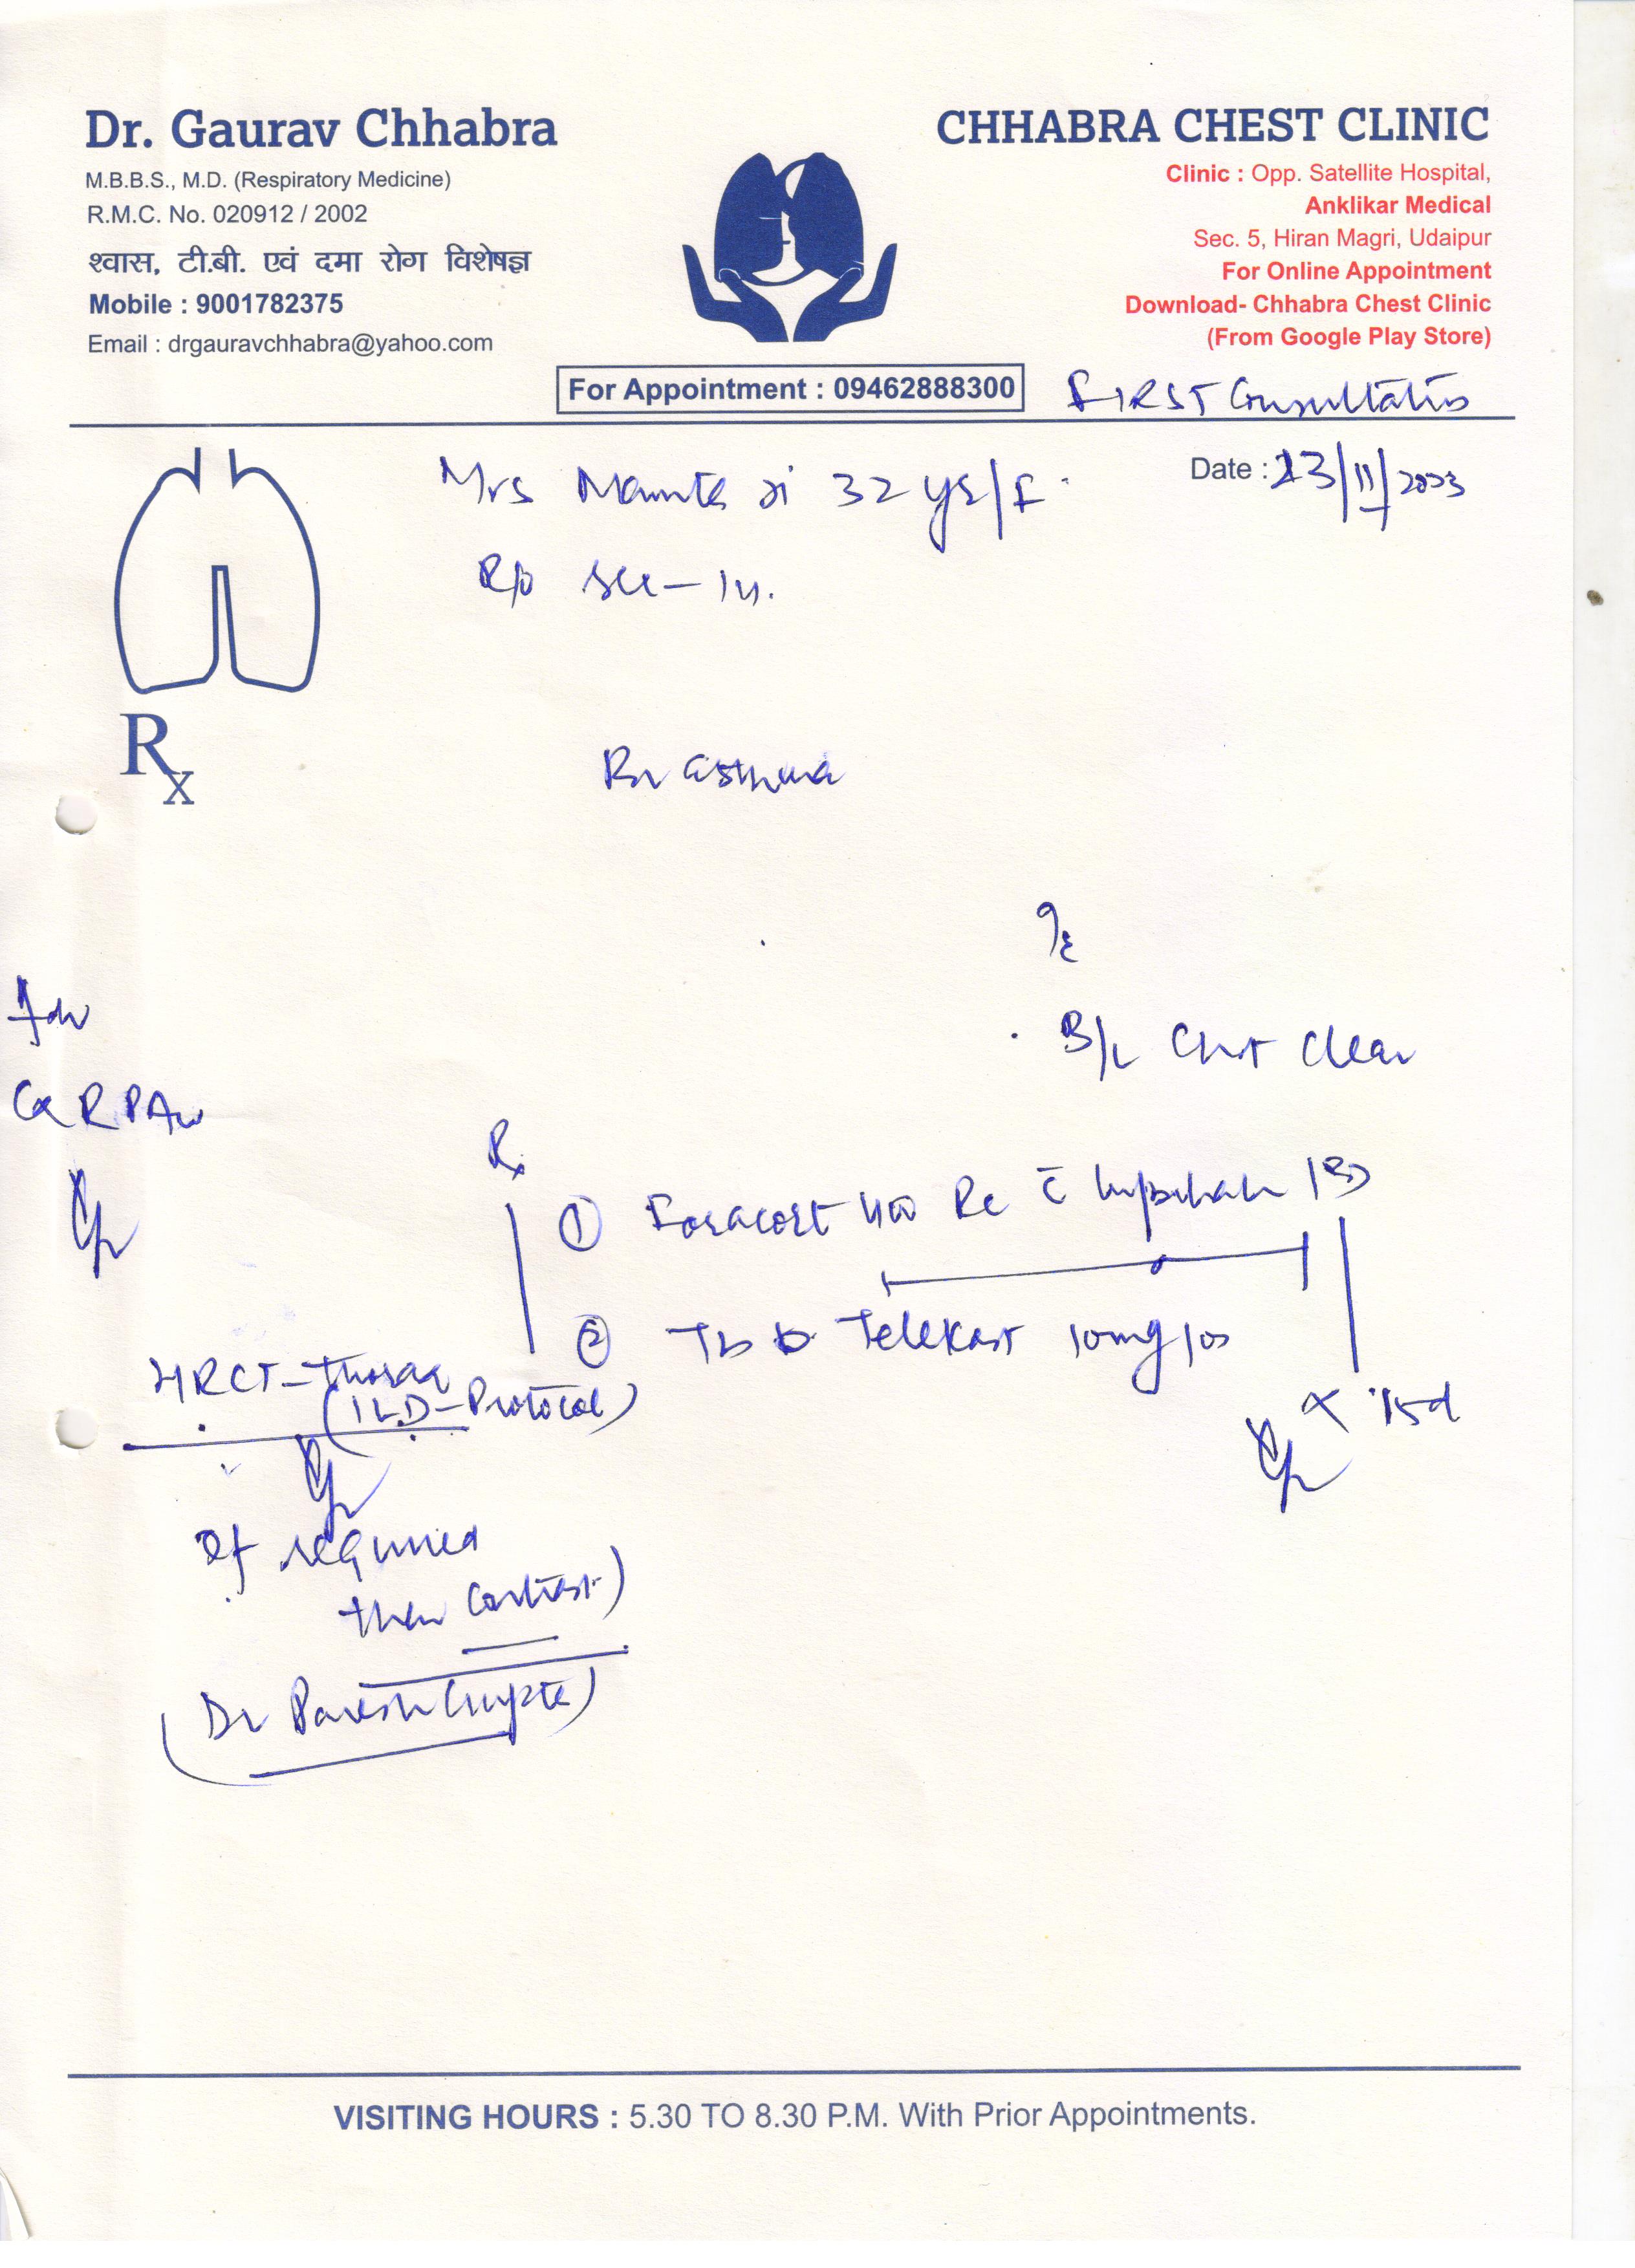 Dr. Gaurav Chhabra
M.B.B.S., M.D. (Respiratory Medicine)
R.M.C. No. 020912 / 2002
श्वास, टी.बी. एवं दमा रोग विशेषज्ञ
Mobile : 9001782375
Email : drgauravchhabra@yahoo.com
CHHABRA CHEST CLINIC
Clinic : Opp. Satellite Hospital,
Anklikar Medical
Sec. 5, Hiran Magri, Udaipur
For Online Appointment
Download- Chhabra Chest Clinic
(From Google Play Store)
For Appointment : 09462888300
FIRST Consultation
Date : 23/11/2023
Mrs Mamta Ji 32 ys/F
R/o Sec-14.
Rx
Br asthma
O/E
B/L Chest Clear
Adv
CXR PA
Rx
① Foracort 400 Rc c̄ 1BD
② Tb Telekast 10mg 1OD
x 15d
HRCT-Thorax
(ILD-Protocol)
If required
then Contrast)
(Dr Paresh Gupta)
VISITING HOURS : 5.30 TO 8.30 P.M. With Prior Appointments.